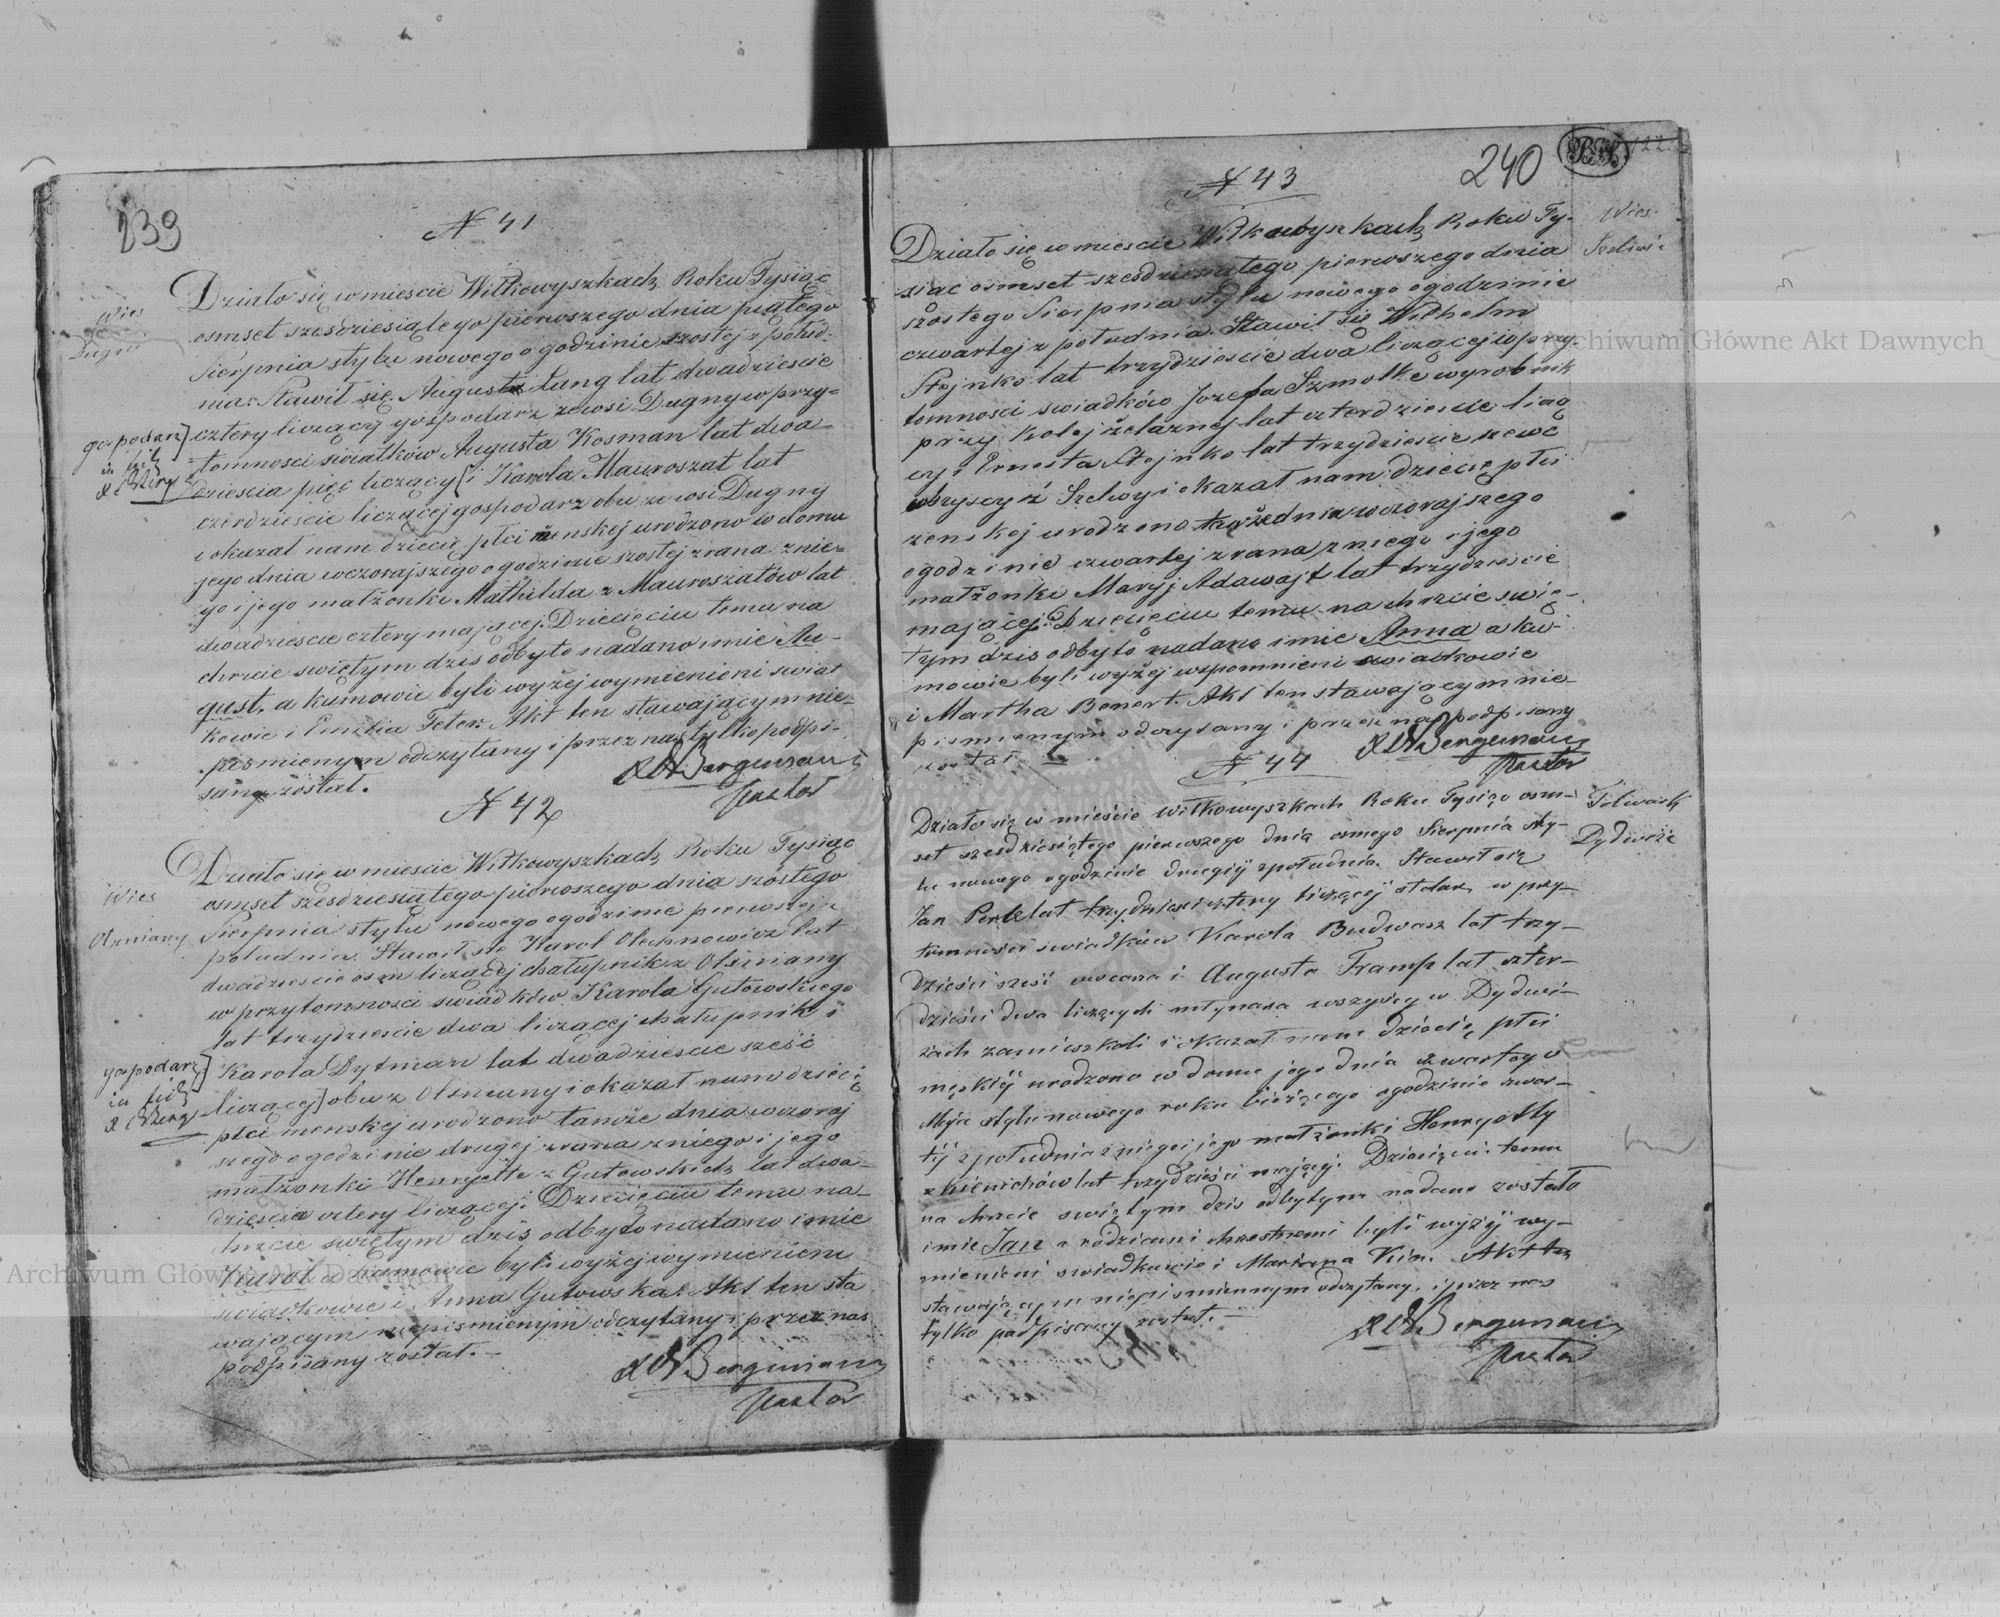 239
N 41
Wies
Dugny
Działo się w miescie Wiłkowyszkach Roku Tysiąc
osmset szesdziesiątego pierwszego dnia piątego
Sierpnia stylu nowego o godzinie szostej z połud-
nia: Stawił się August Lang lat dwadziescie
cztery liczący gospodarz ze wsi Dugny w przy-
tomnosci swiatków Augusta Kosman lat dwa-
dziescia pięc liczący [i Karola Mauroszat lat
gospodarz]
in fid:
czerdziescie liczącej gospodarz obu ze wsi Dugny
i okazał nam dziecie płci menskej urodzono w domu
jego dnia wczorajszego o godzinie szostej z rana z nie-
go i jego małżonki Mathilda z Mauroszatów lat
dwadziescie cztery mającej. Dziecięciu temu na
chrzcie swiętym dzis odbyto nadano imie Au-
gust, a kumowie byli wyżej wymienieni swiat
kowie i Emilia Feter. Akt ten stawającym nie-
pismienym odczytany i przez nas tylko podpi-
sany został.
Bergmann
Pastor
N 42
Wies
Działo się w miescie Wiłkowyszkach Roku Tysiąc
osmset szesdziesiątego pierwszego dnia szóstego
Sierpnia stylu nowego o godzinie pierwszej z
południa. Stawił się Karol Olechnowicz lat
dwadziescie osm liczącej chałupnik z
w przytomnosci swiadków Karola Gutowskiego
lat trzydziescie dwa liczącej chałupnik i
Karola Dytman lat dwadziescie sześć
gospodarz]
in fid:
liczącej] obu z i okazał nam dziecię
płci menskej urodzono tamże dnia wczoraj
szego o godzinie drugej z rana z niego i jego
małżonki Henryette z Gutowskich lat dwa-
dziescia cztery liczącej: Dziecięciu temu na
chrzcie swiętym dzis odbyto nadano imie
Karol a kumowie byli wyżej wymienieni
swiadkowie i Anna Gutowska. Akt ten sta
wającym niepismienym odczytany i przez nas
podpisany został.-
Bergmann
Pastor
240
N 43
Wies
Działo się w miescie Wiłkowyszkach Roku Ty-
siąc osmset szesdziesiątego pierwszego dnia
szostego Sierpnia stylu nowego o godzinie
czwartej z południa. Stawił się Wilhelm
Stejnko lat trzydziescie dwa liczącej w przy
tomnosci swiadków Jozefa Szmolke wyrobnik
przy kolej żelaznej lat czterdziescie licą
cej i Ernesta Stejnko lat trzydziescie szewc
wszyscy z Szelwy i okazał nam dziecię płci
zenskej urodzono tamże dnia wczorajszego
o godzinie czwartej z rana z niego i jego
małżonki Maryj Adawajt lat trzydziescie
mającej. Dziecięciu temu na chrzcie swię-
tym dzis odbyto nadano imie Anna a ku-
mowie byli wyżej wspomnieni swiadkowie
i Martha Benert. Akt ten stawającym nie-
pismienym odczytany i przez nas podpisany
został.
Bergmann
Pastor
N 44
Folwark
Dydwiże
Działo się w mieście Wiłkowyszkach Roku Tysiąc osm-
set szesdziesiątego pierwszego dnia osmego Sierpnia sty-
lu nowego o godzinie drugiej z południa. Stawił się
Jan Perle lat trzydziesci cztery liczącej stolarz w przy-
tomności swiadków Karola Budwasz lat trzy-
dzieści sześć i Augusta Tramp lat czter-
dzieści dwa liczących młynarza wszyscy w Dydwi-
żach zamieszkali i okazał nam dziecię płci
męskiej urodzone w domu jego dnia czwartego
stylu nowego roku bieżącego o godzinie
tej z południa z niego i jego małżonki Henryetty
z lat trzydzieści mającej. Dziecięciu temu
na chrzcie swiętym dzis odbytym nadano zostało
imie Jan a rodzicami chrzestnemi byli wyżej wy-
mienieni swiadkowie i Maryanna Akt ten
stawającym niepismiennym odczytany, i przez nas
tylko podpisany został.-
Bergmann
Pastor
Archiwum Główne Akt Dawnych
Archiwum Główne Akt Dawnych